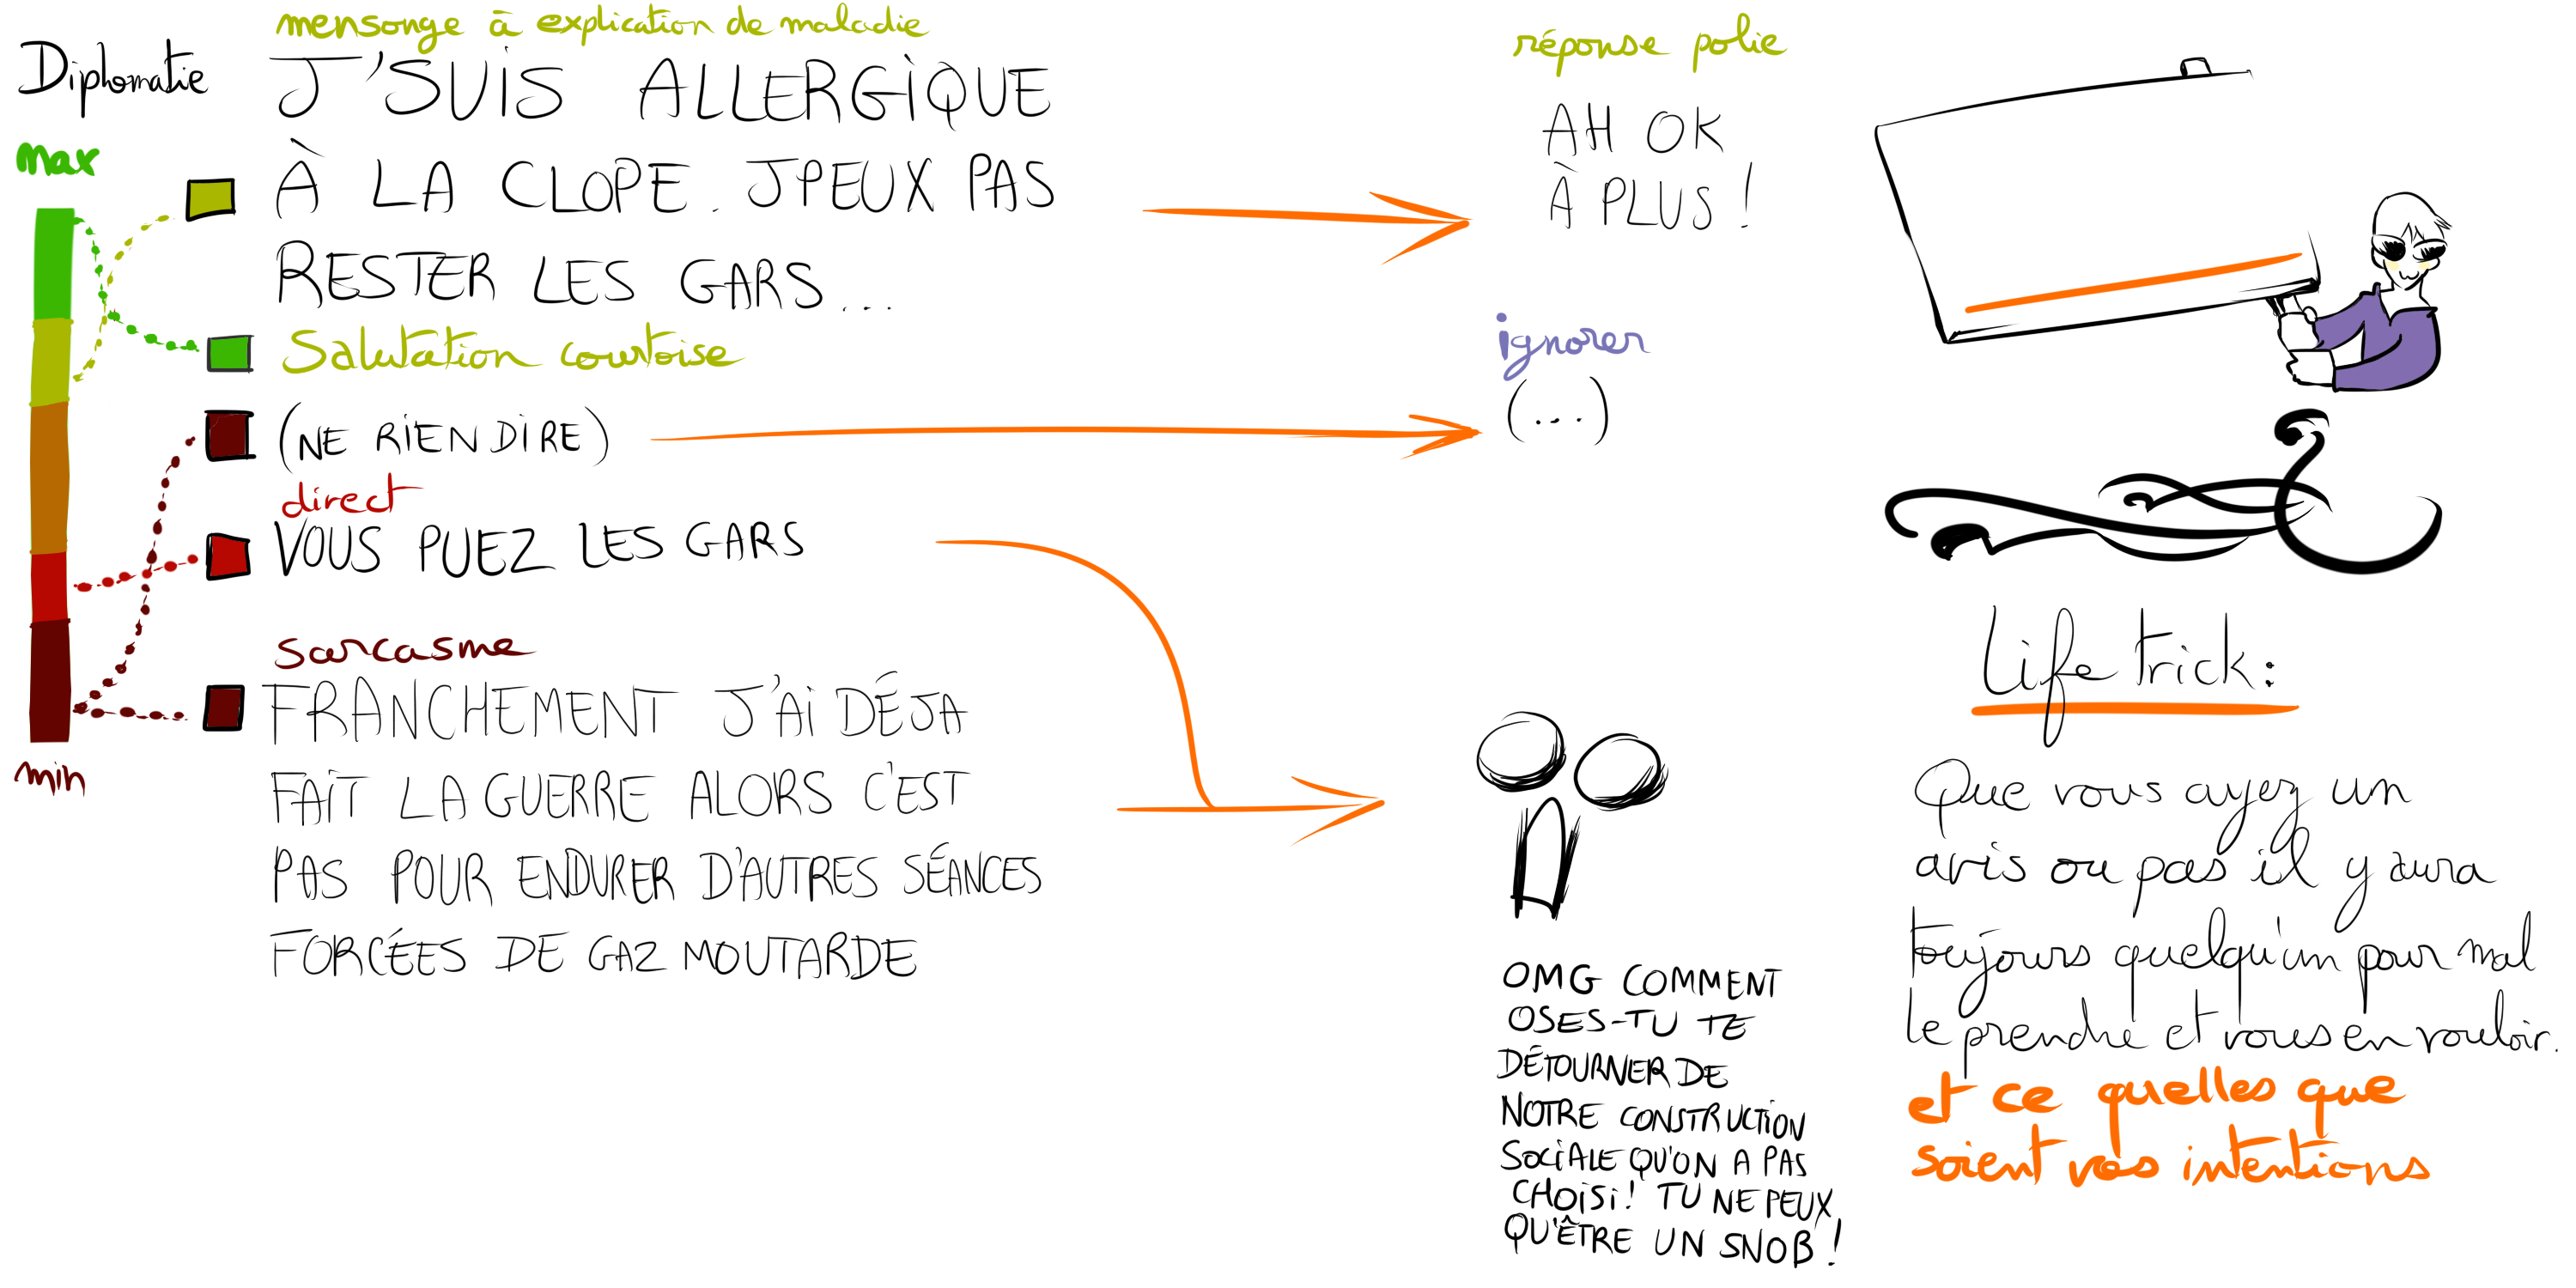 Diplomatie
max
min
mensonge à explication de maladie
J'SUIS ALLERGIQUE
À LA CLOPE. JPEUX PAS
RESTER LES GARS...
Salutation courtoise
(NE RIEN DIRE)
direct
VOUS PUEZ LES GARS
sarcasme
FRANCHEMENT J'AI DÉJA
FAIT LA GUERRE ALORS C'EST
PAS POUR ENDURER D'AUTRES SÉANCES
FORCÉES DE GAZ MOUTARDE
réponse polie
AH OK
À PLUS !
ignorer
(...)
OMG COMMENT
OSES-TU TE
DÉTOURNER DE
NOTRE CONSTRUCTION
SOCIALE QU'ON A PAS
CHOISI! TU NE PEUX
QU'ÊTRE UN SNOB!
Life trick:
Que vous ayez un
avis ou pas il y aura
toujours quelqu'un pour mal
le prendre et vous en vouloir.
et ce quelles que
soient vos intentions